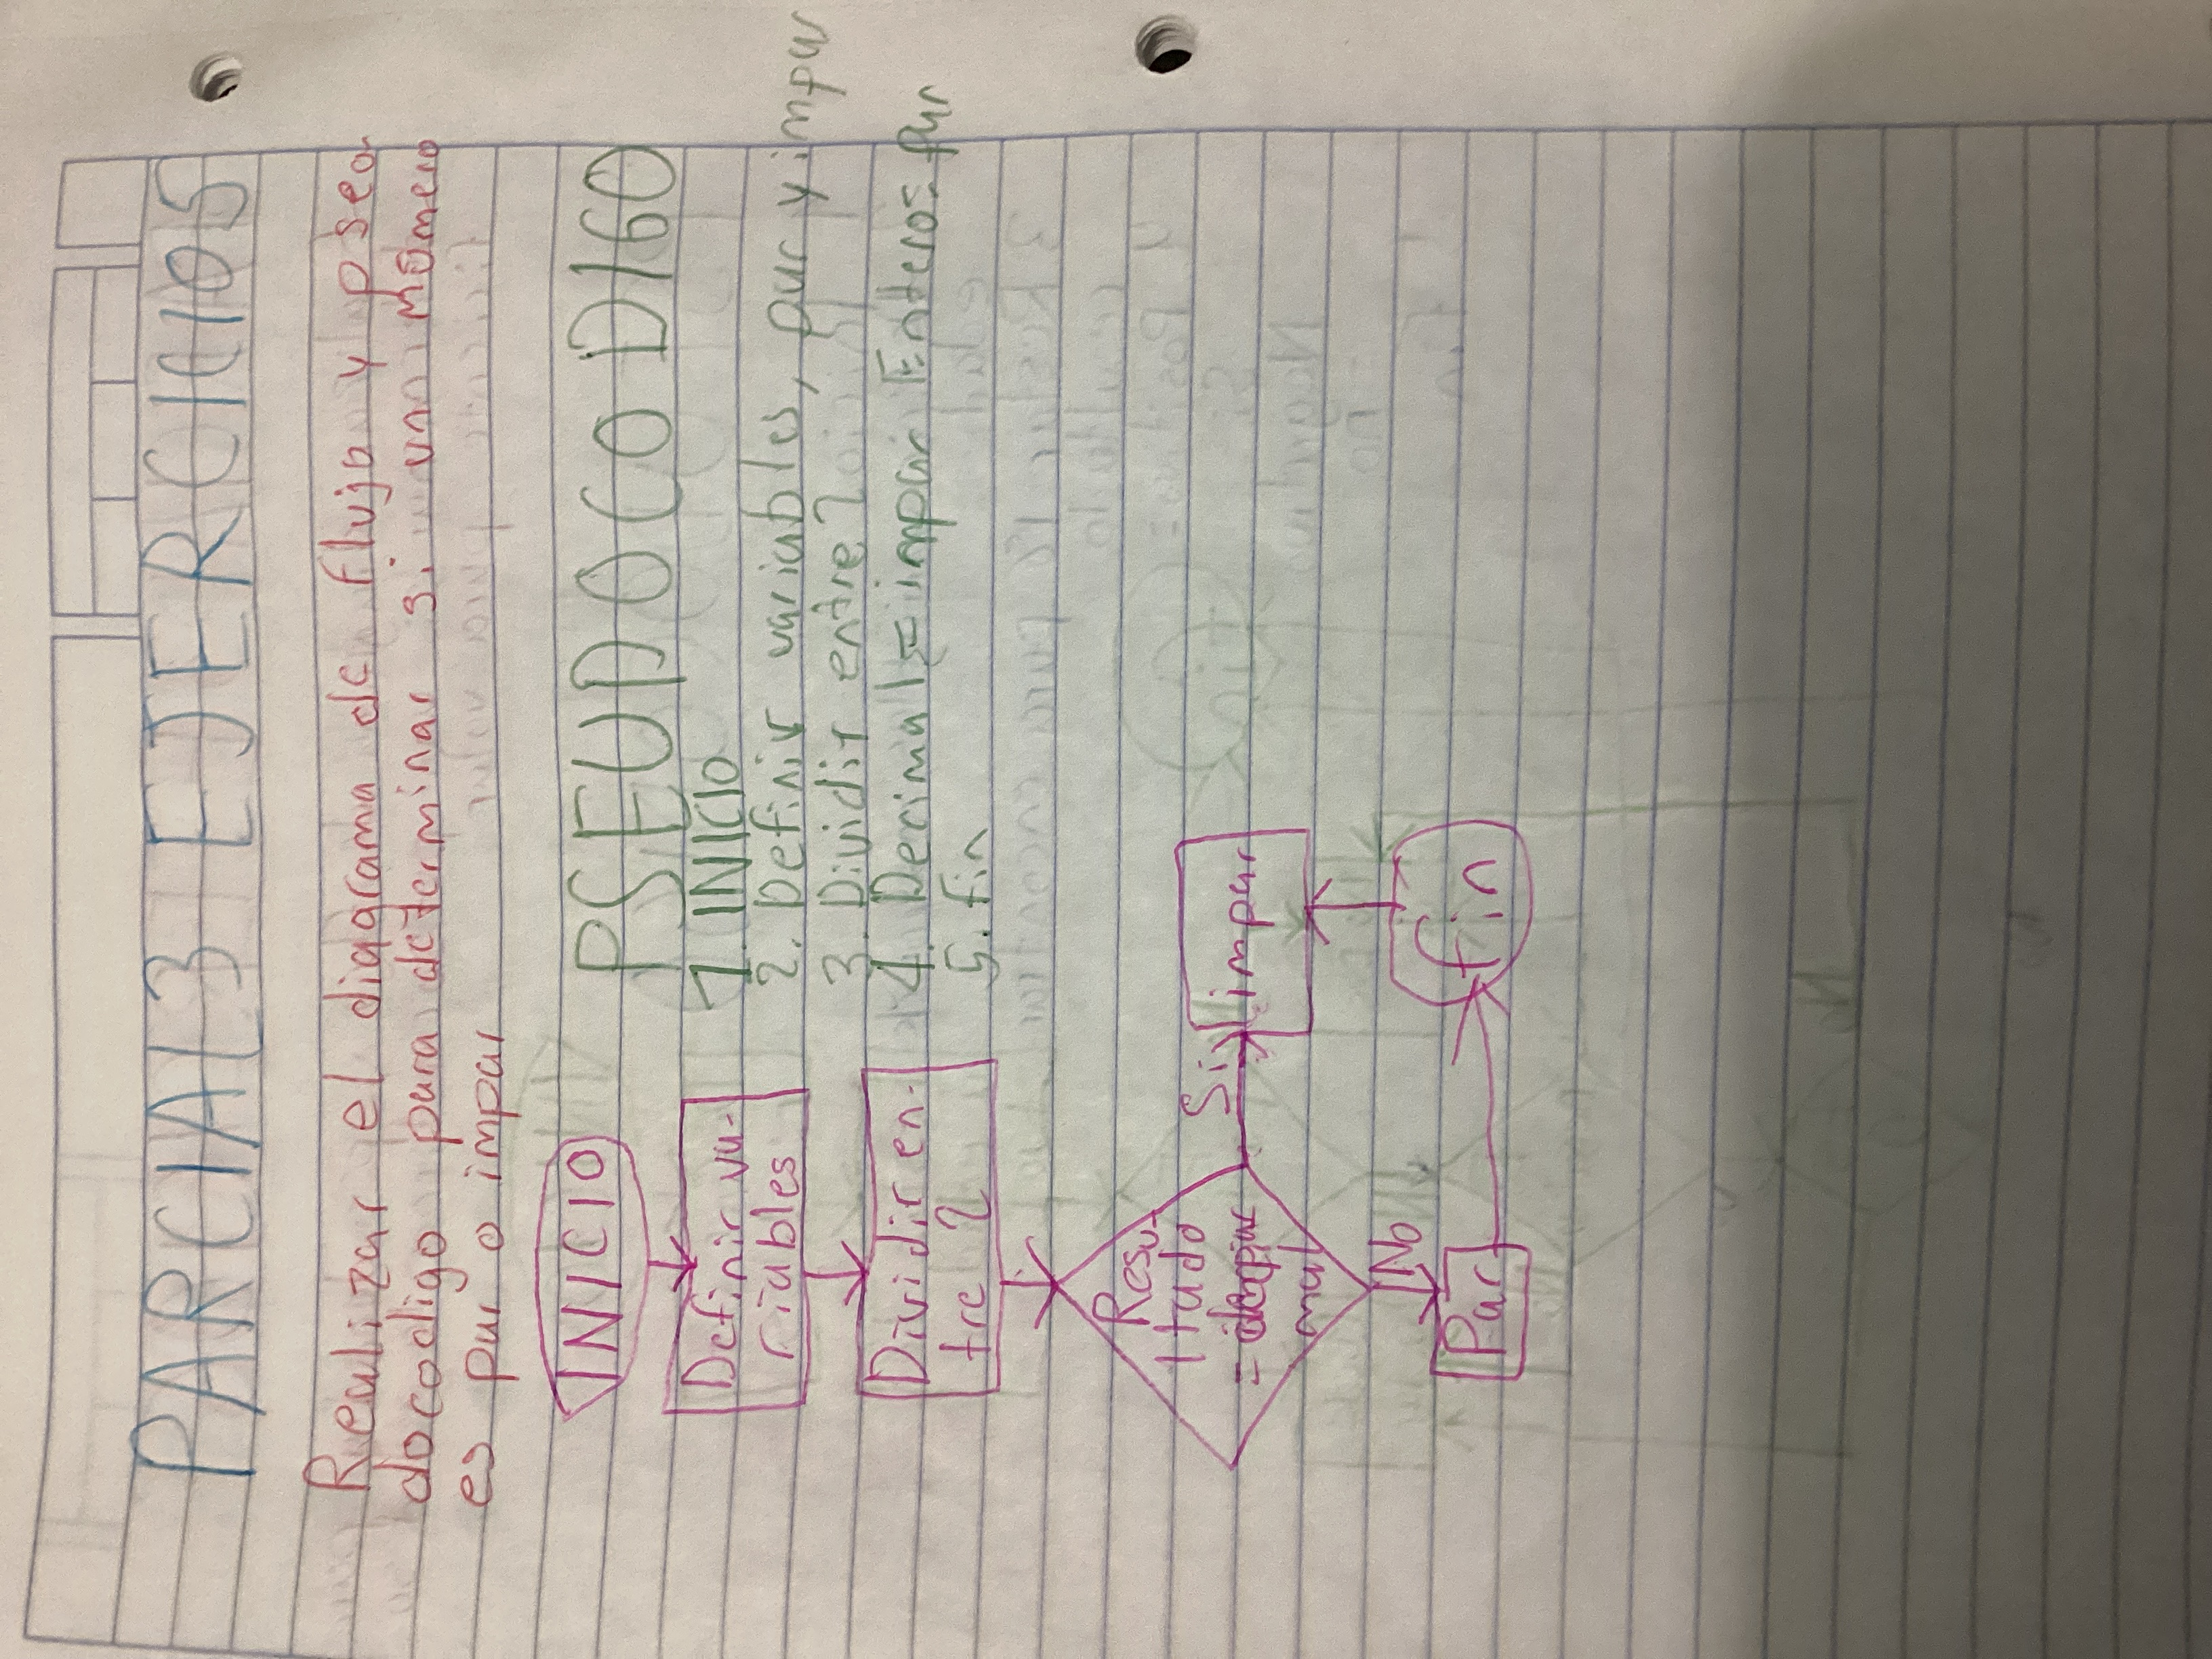 PARCIAL 3 EJERCICIOS
Realizar el diagrama de flujo y pseo
docodigo para determinar si un nómero
es par o impar
PSEUDOCODIGO
1. INICIO
2. Definir variables, par y impar
3. Dividir entre 2
4. Decimal = impar Enteros = par
5. Fin
INICIO
Definir va-
riables
Dividir en-
tre 2
Resu-
ltado
=
mal
Si
impar
No
Par
fin